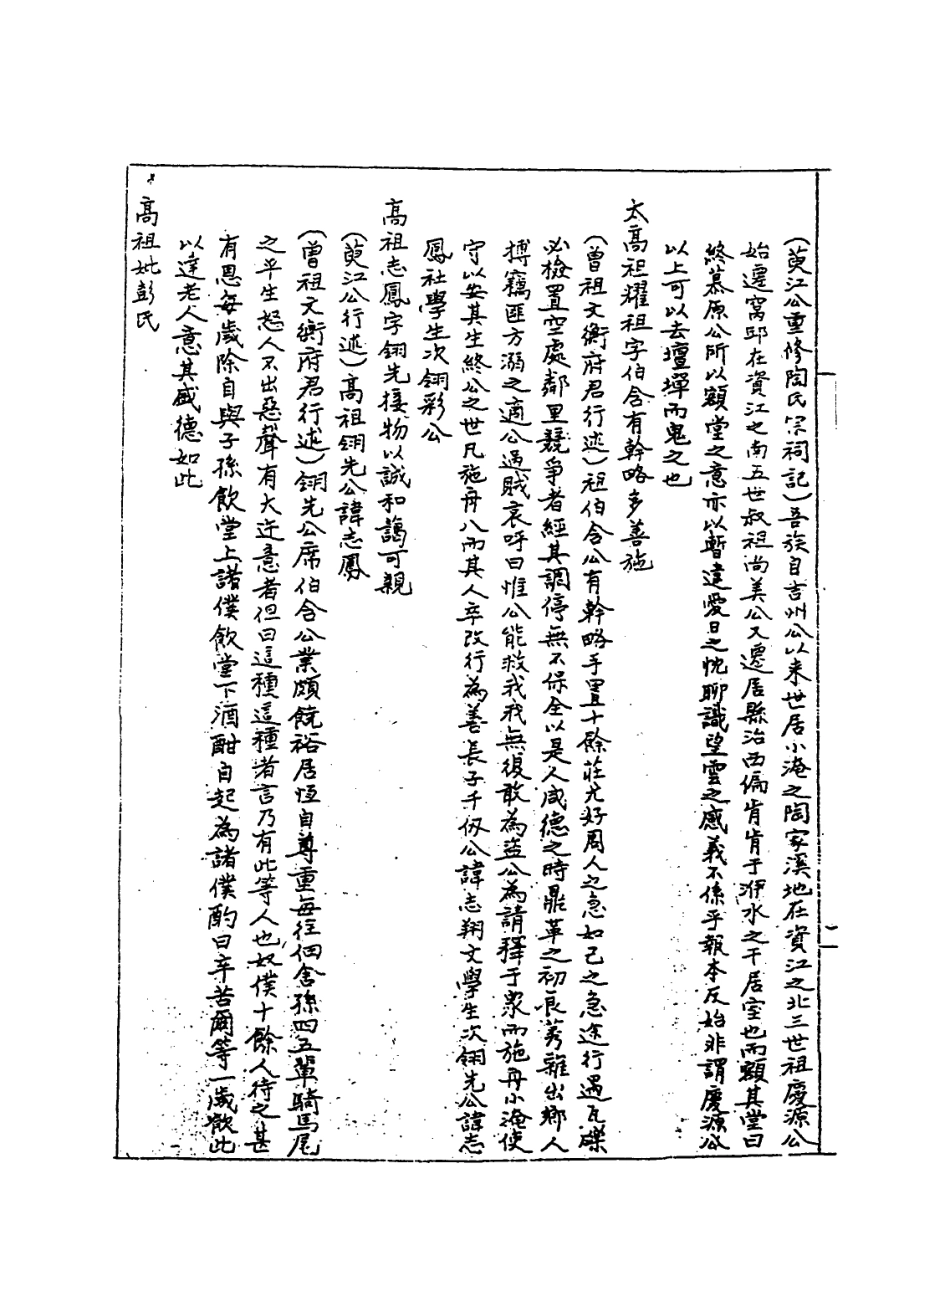 （萸江公重修陶氏宗祠記）吾族自吉州公以来世居小淹之陶家溪地在資江之北三世祖慶源公
始遷窩邱在資江之南五世叔祖尚美公又遷居縣治西偏肯肯于洢水之干居室也而顧其堂曰
終慕原公所以額堂之意亦以暫違愛日之忱聊識望雲之感義不係乎報本反始非謂慶源公
以上可以去壇墠而鬼之也
太高祖耀祖字伯含有幹略多善施
（曾祖文衡府君行述）祖伯含公有幹略手置十餘莊尤好周人之急如己之急途行遇瓦礫
必檢置空處鄰里競爭者經其調停無不保全以是人咸德之時鼎革之初良莠雜出鄉人
搏竊匪方溺之適公過賊哀呼曰惟公能救我我無復敢為盜公為請釋于眾而施舟小淹使
守以安其生終公之世凡施舟八而其人卒改行為善長子千仭公諱志翔文學生次翎先公諱志
鳳社學生次翎彩公
高祖志鳳字翎先接物以誠和藹可親
（萸江公行述）高祖翎先公諱志鳳
（曾祖文衡府君行述）翎先公席伯含公業頗饒裕居恆自尊重每往佃舍孫四五輩騎馬尾
之平生怒人不出惡聲有大迕意者但曰這種這種者言乃有此等人也奴僕十餘人待之甚
有恩每歲除自與子孫飲堂上諸僕飲堂下酒酣自起為諸僕酌曰辛苦爾等一歲飲此
以達老人意其盛德如此
高祖妣彭氏